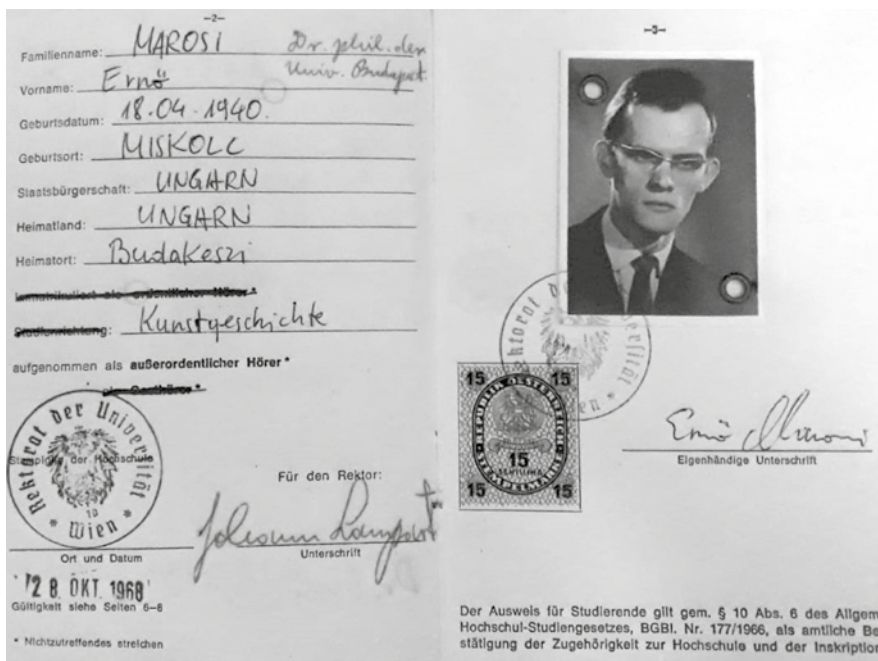 –2–
Familienname: MAROSI Dr. phil. der
Univ. Budapest
Vorname: Ernő
Geburtsdatum: 18.04.1940.
Geburtsort: MISKOLC
Staatsbürgerschaft: UNGARN
Heimatland: UNGARN
Heimatort: Budakeszi
Immatrikuliert als ordentlicher Hörer*
Studienrichtung: Kunstgeschichte
aufgenommen als außerordentlicher Hörer*
als Gasthörer*
Rektorat der Universität
* Wien *
Stampiglie der Hochschule
Für den Rektor:
Ort und Datum
Unterschrift
28. OKT. 1968
Gültigkeit siehe Seiten 6–8
* Nichtzutreffendes streichen
–3–
Rektorat der Universität
Wien
15 15
REPUBLIK OESTERREICH
15
SCHILLING
STEMPELMARKE
15 15
Ernő Marosi
Eigenhändige Unterschrift
Der Ausweis für Studierende gilt gem. § 10 Abs. 6 des Allgem
Hochschul-Studiengesetzes, BGBl. Nr. 177/1966, als amtliche Be
stätigung der Zugehörigkeit zur Hochschule und der Inskription